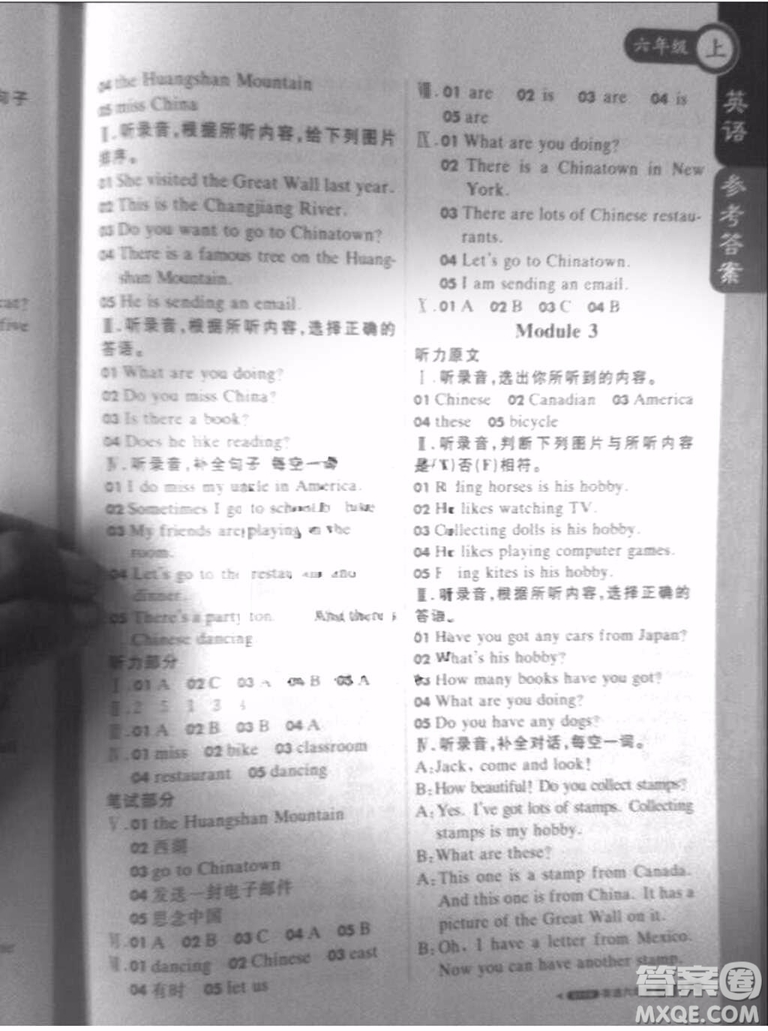 六年级 上
英语 参考答案
句子
cat?
five
04 the Huangshan Mountain
05 miss China
Ⅱ.听录音,根据所听内容,给下列图片
排序。
01 She visited the Great Wall last year.
02 This is the Changjiang River.
03 Do you want to go to Chinatown?
04 There is a famous tree on the Huang-
shan Mountain.
05 He is sending an email.
Ⅲ.听录音,根据所听内容,选择正确的
答语。
01 What are you doing?
02 Do you miss China?
03 Is there a book?
04 Does he like reading?
Ⅳ.听录音,补全句子 每空一词
01 I do miss my uncle in America.
02 Sometimes I go to school
03 My friends are playing in the
room.
04 Let's go to the
dinner.
05 There's a party
Chinese dancing
听力部分
Ⅰ.01 A 02 C 03 A 04 B 05 A
Ⅱ.2 5 1 3
Ⅲ.01 A 02 B 03 B 04 A
Ⅳ.01 miss 02 bike 03 classroom
04 restaurant 05 dancing
笔试部分
Ⅴ.01 the Huangshan Mountain
02 西湖
03 go to Chinatown
04 发送一封电子邮件
05 思念中国
Ⅵ.01 A 02 B 03 C 04 A 05 B
Ⅶ.01 dancing 02 Chinese 03 east
04 有时 05 let us
Ⅷ.01 are 02 is 03 are 04 is
05 are
Ⅸ.01 What are you doing?
02 There is a Chinatown in New
York.
03 There are lots of Chinese restau-
rants.
04 Let's go to Chinatown.
05 I am sending an email.
Ⅹ.01 A 02 B 03 C 04 B
Module 3
听力原文
Ⅰ.听录音,选出你所听到的内容。
01 Chinese 02 Canadian 03 America
04 these 05 bicycle
Ⅱ.听录音,判断下列图片与所听内容
是(T)否(F)相符。
01 Riding horses is his hobby.
02 He likes watching TV.
03 Collecting dolls is his hobby.
04 He likes playing computer games.
05 Flying kites is his hobby.
Ⅲ.听录音,根据所听内容,选择正确的
答语。
01 Have you got any cars from Japan?
02 What's his hobby?
03 How many books have you got?
04 What are you doing?
05 Do you have any dogs?
Ⅳ.听录音,补全对话,每空一词。
A:Jack, come and look!
B:How beautiful! Do you collect stamps?
A:Yes. I've got lots of stamps. Collecting
stamps is my hobby.
B:What are these?
A:This one is a stamp from Canada.
And this one is from China. It has a
picture of the Great Wall on it.
B:Oh, I have a letter from Mexico.
Now you can have another stamp.
答案圈
MXQE.COM